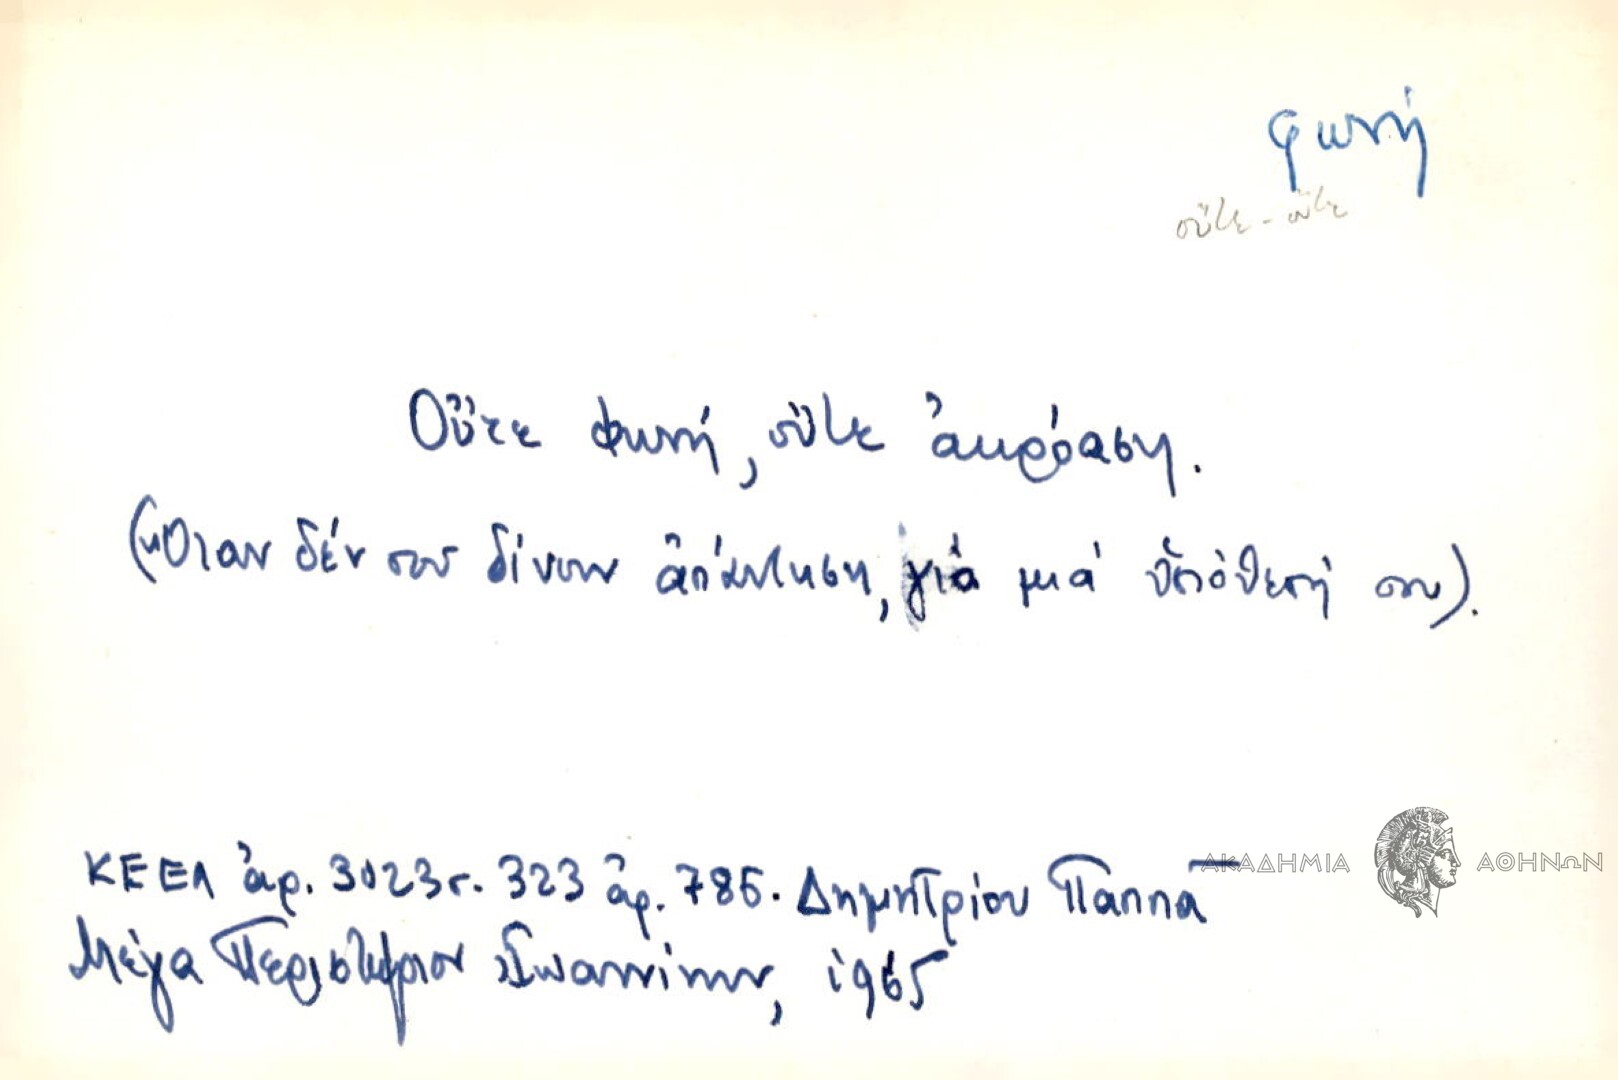 φωνή
οὔτε - οὔτε
Οὔτε φωνή, οὔτε ἀκρόαση.
(Ὅταν δέν σου δίνουν ἀπάντηση, γιά μιά ὑπόθεσή σου).
ΚΕΕΛ ἀρ. 3023 σ. 323 ἀρ. 786. Δημητρίου Παππᾶ
Μέγα Περιστέριον Ἰωαννίνων, 1965
ΑΚΑΔΗΜΙΑ ΑΘΗΝΩΝ